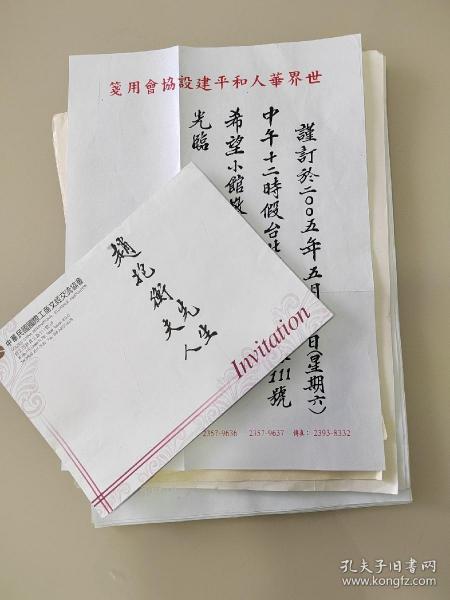 世界華人和平建設協會用箋
謹訂於二〇〇五年五月
日(星期六)
中午十二時假台北
111號
希望小館敬
光臨
趙抱衡先生
夫人
Invitation
中華民國國際工商文經交流協會
2357-9636 2357-9637 傳真:2393-8332
孔夫子旧书网
www.kongfz.com